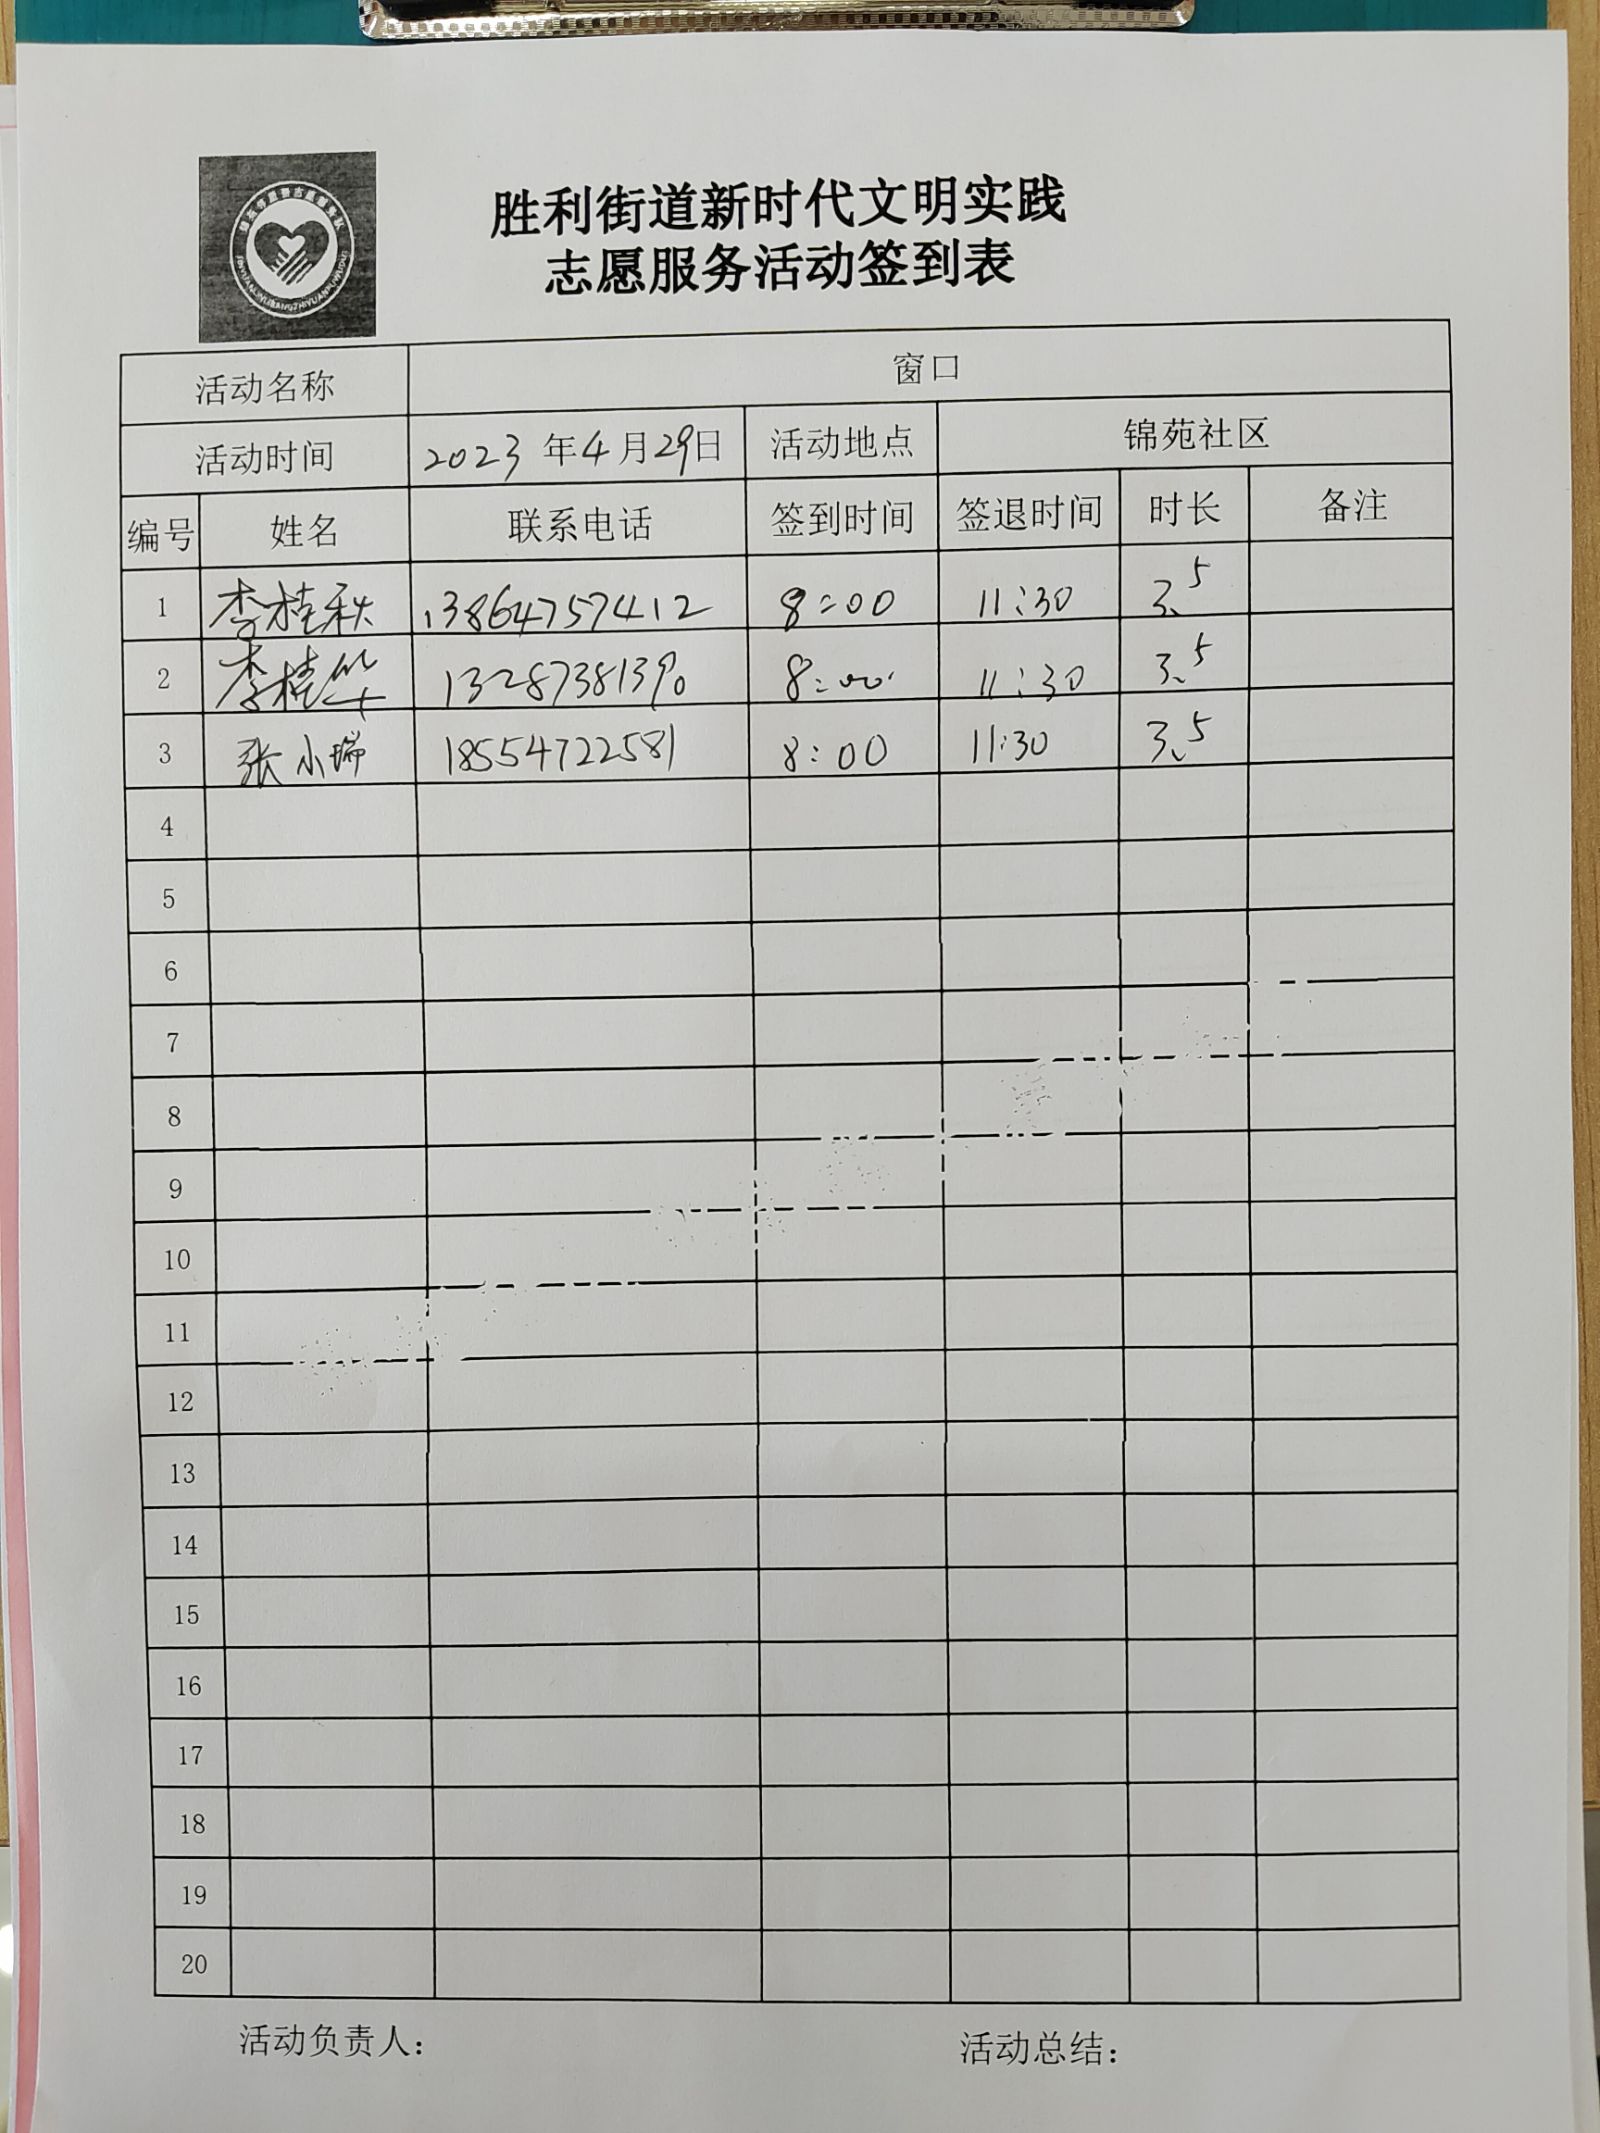 胜利街道新时代文明实践
志愿服务活动签到表
活动名称 窗口
活动时间 2023 年4月29日 活动地点 锦苑社区
编号 姓名 联系电话 签到时间 签退时间 时长 备注
1 李桂秋 13864757412 8:00 11:30 3.5
2 李桂华 13287381390 8:00 11:30 3.5
3 张小瑞 18554722581 8:00 11:30 3.5
4
5
6
7
8
9
10
11
12
13
14
15
16
17
18
19
20
活动负责人: 活动总结: